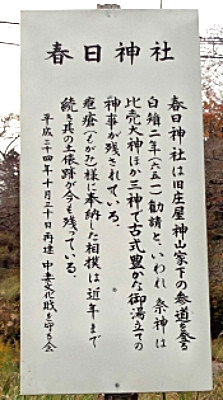 春日神社
春日神社は旧庄屋神山家下の参道を登る
白雉二年(六五一)勧請と、いわれ 祭神は
比売大神ほか三神で古式豊かな御湯立ての
神事が残されている。
疱瘡(もがみ)様に奉納した相撲は近年まで
続き其の土俵跡が今も残っている。
平成二十四年十月三十日再建 中妻文化財を守る会